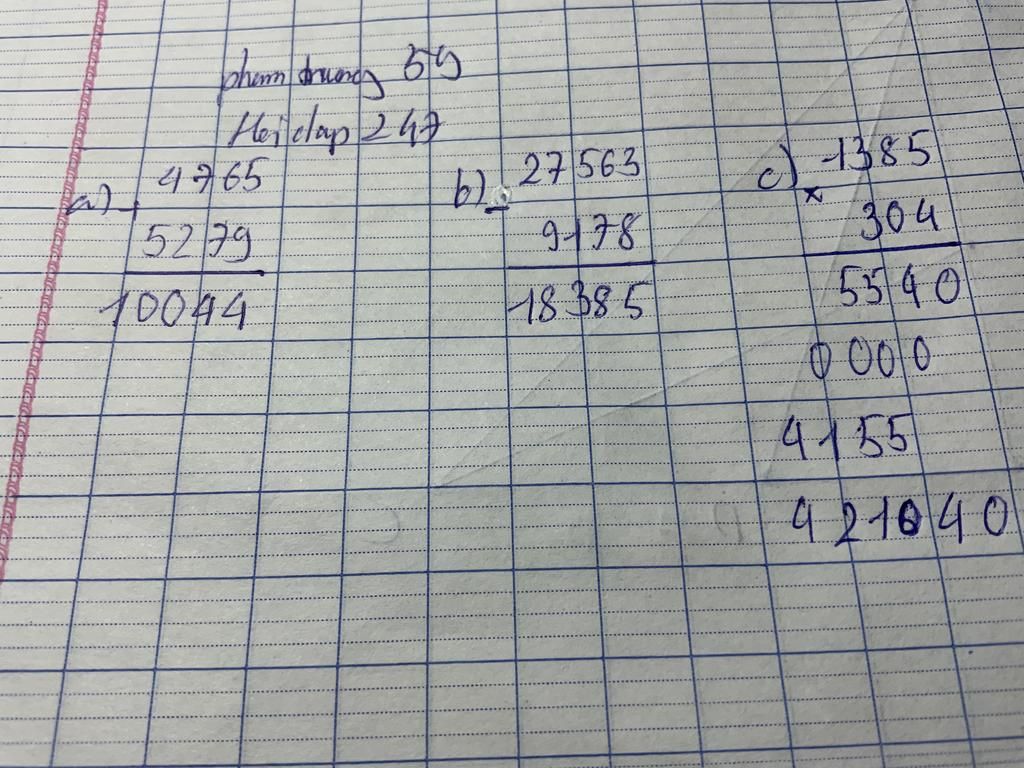 phạm trung 59
Hỏi đáp 247
a) + 4765
5279
10044
b) - 27563
9178
18385
c) x 1385
304
5540
0000
4155
421040